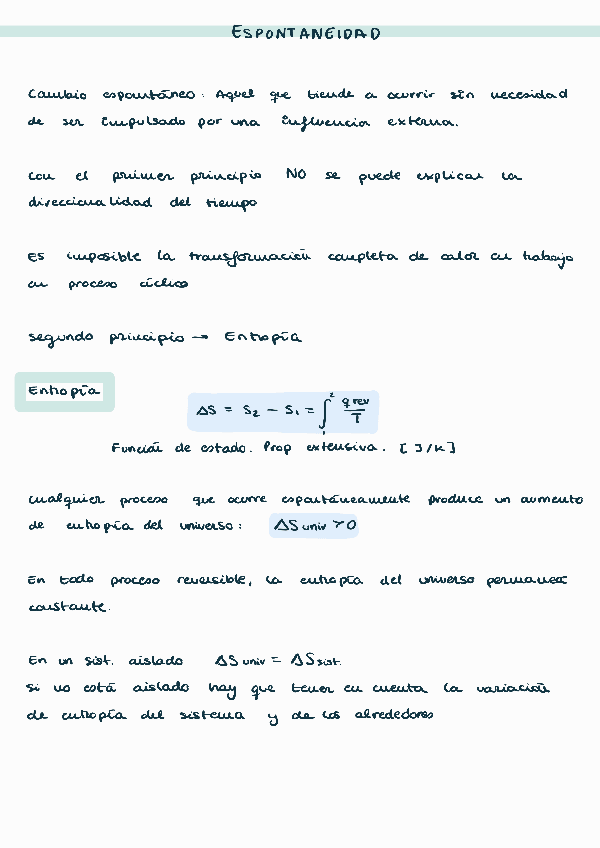 ESPONTANEIDAD
Cambio espontáneo: Aquel que tiende a ocurrir sin necesidad
de ser impulsado por una influencia externa.
con el primer principio NO se puede explicar la
direccionalidad del tiempo
Es imposible la transformación completa de calor en trabajo
en proceso cíclico
segundo principio → Entropía
Entropía
ΔS = S₂ - S₁ = ∫₁² q rev / T
Función de estado. Prop extensiva. [J/K]
cualquier proceso que ocurre espontáneamente produce un aumento
de entropía del universo: ΔS univ > 0
En todo proceso reversible, la entropía del universo permanece
constante.
En un sist. aislado ΔS univ = ΔS sist.
si no está aislado hay que tener en cuenta la variación
de entropía del sistema y de los alrededores